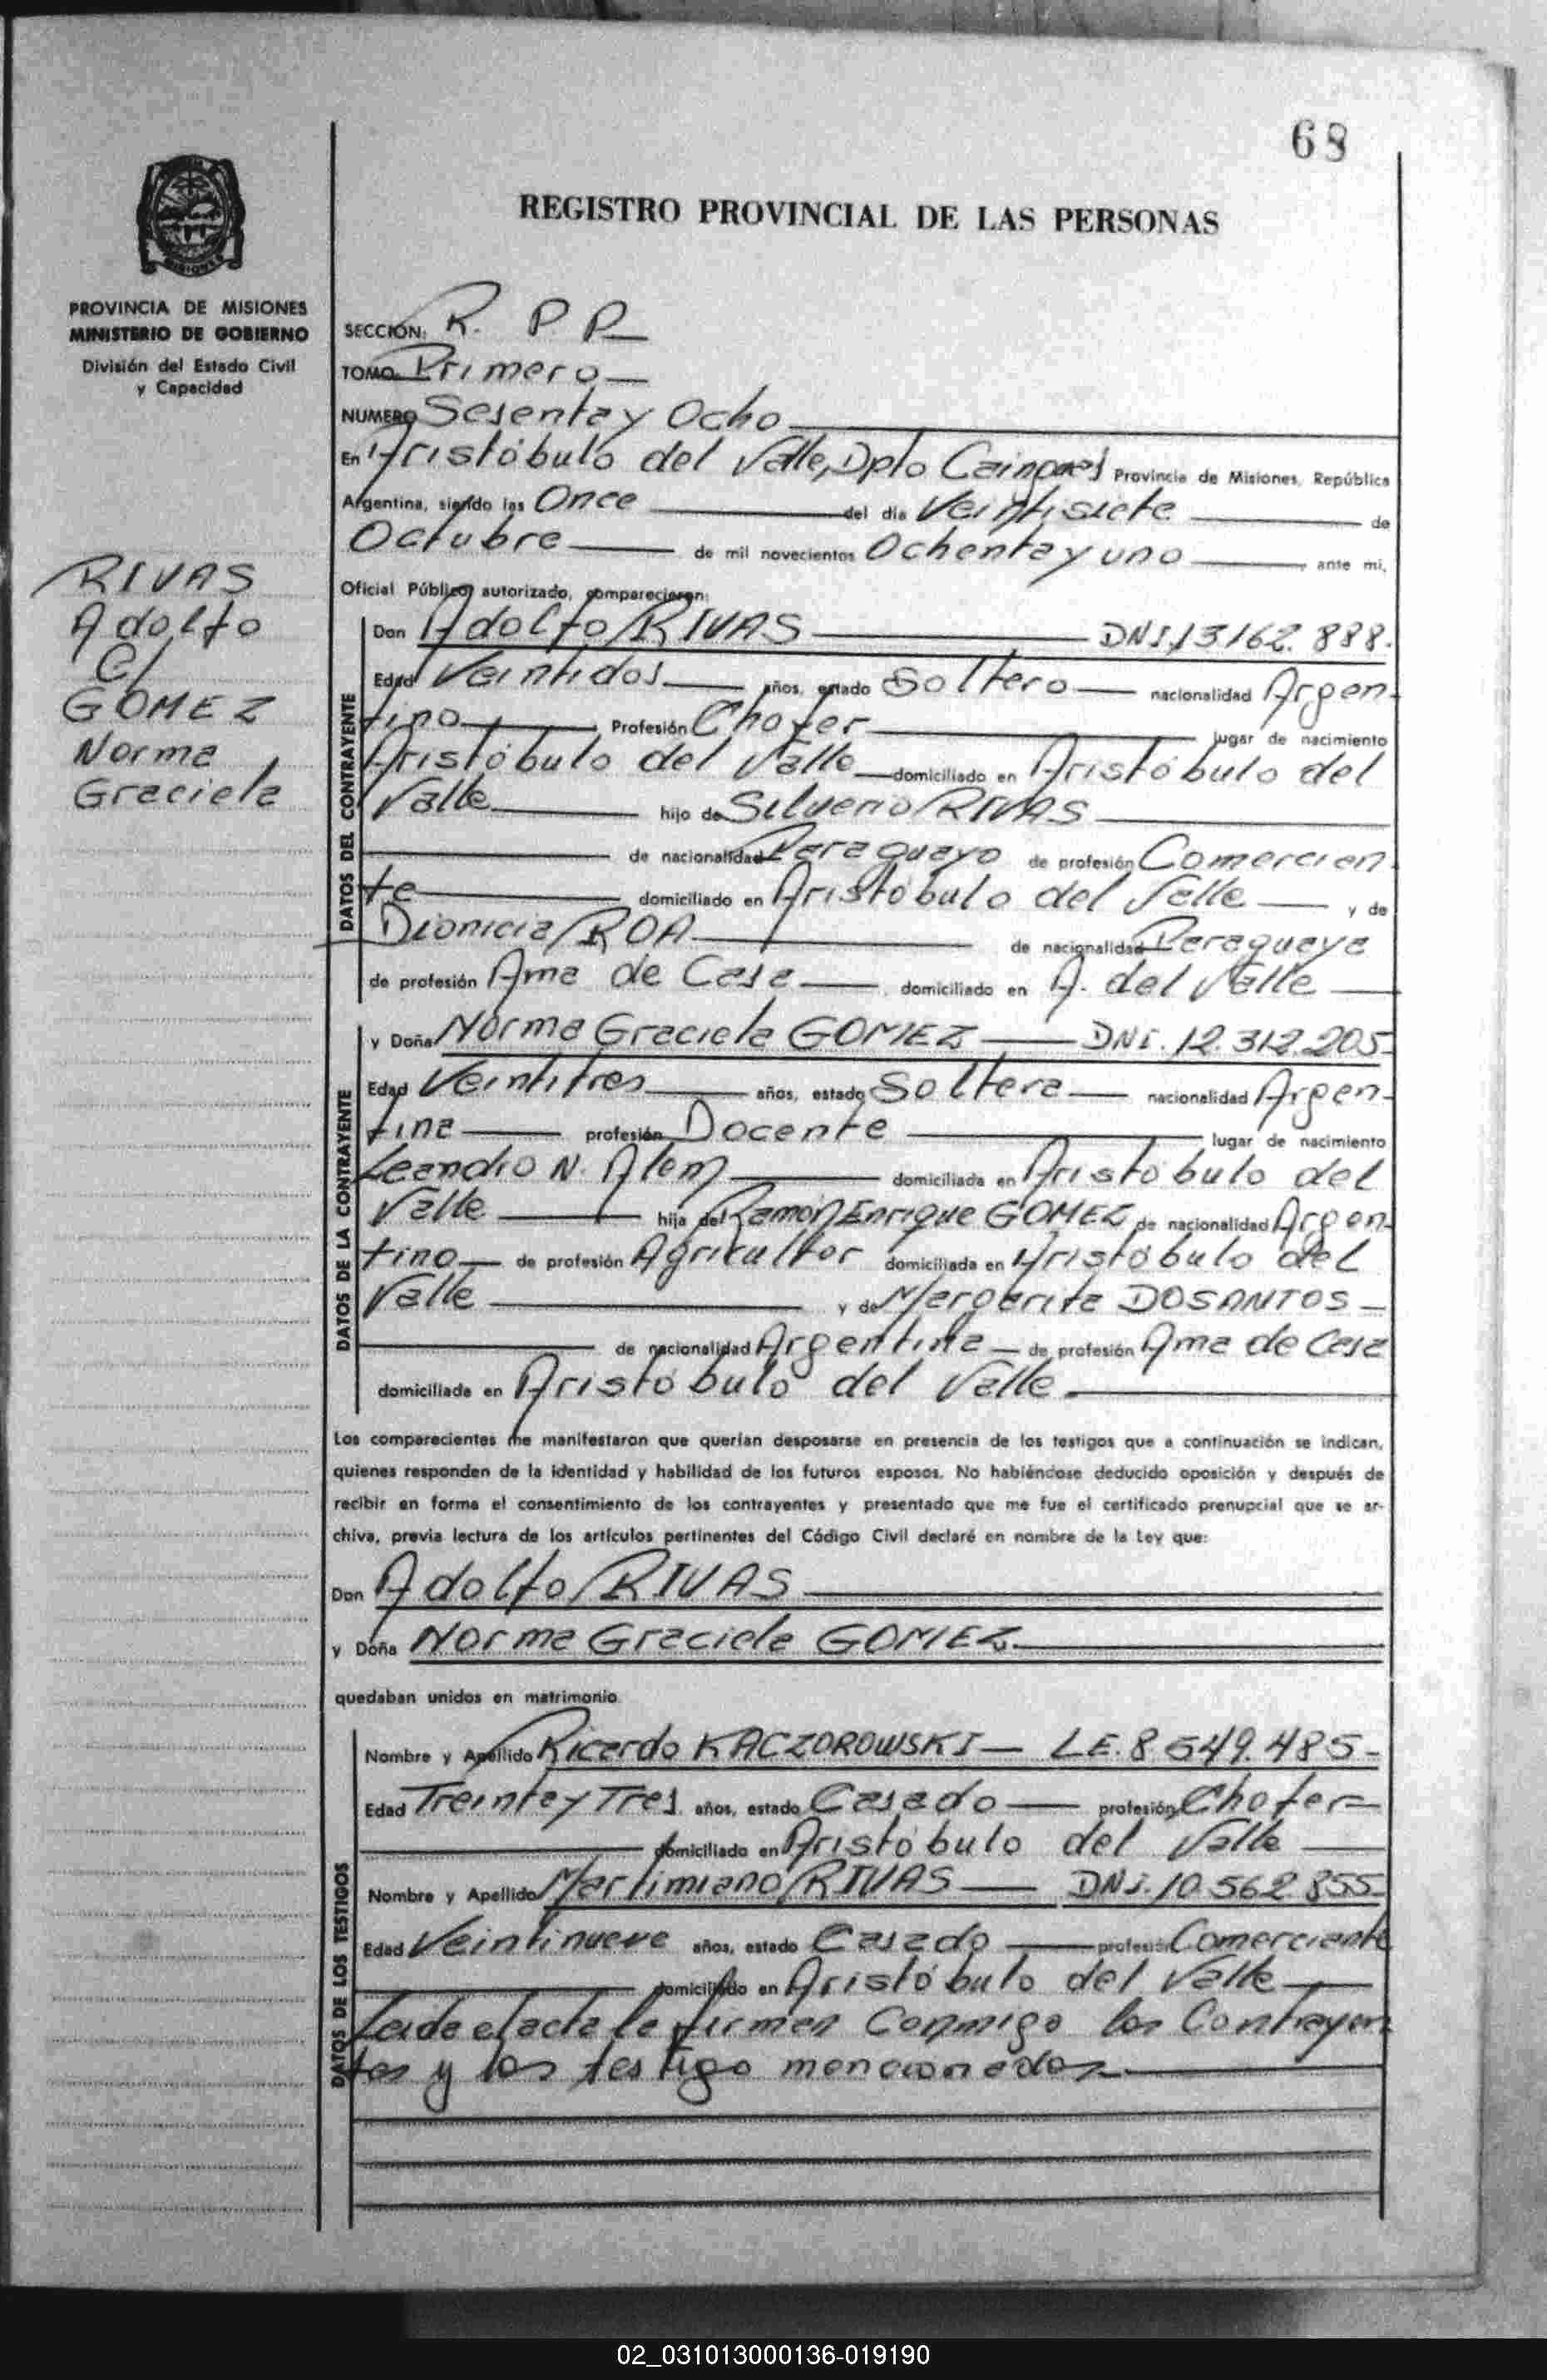 68
REGISTRO PROVINCIAL DE LAS PERSONAS
MISIONES
PROVINCIA DE MISIONES
MINISTERIO DE GOBIERNO
División del Estado Civil
y Capacidad
RIVAS
Adolfo
C/
GOMEZ
Norma
Graciela
SECCIÓN: R. P P
TOMO Primero
NUMERO Sesenta y Ocho
En Aristóbulo del Valle, Dpto Cainguas Provincia de Misiones, República
Argentina, siendo las Once del día Veintisiete de
Octubre de mil novecientos Ochenta y uno ante mi,
Oficial Público autorizado, comparecieron:
DATOS DEL CONTRAYENTE
Don Adolfo RIVAS DNI 13162.888.
Edad Veintidos años, estado Soltero nacionalidad Argen-
tino Profesión Chofer lugar de nacimiento
Aristóbulo del Valle domiciliado en Aristóbulo del
Valle hijo de Silverio RIVAS
de nacionalidad Paraguayo de profesión Comercian
te domiciliado en Aristóbulo del Valle y de
Dionicia ROA de nacionalidad Paraguaya
de profesión Ama de Casa domiciliado en A. del Valle
DATOS DE LA CONTRAYENTE
y Doña Norma Graciela GOMEZ DNI. 12.312.205
Edad Veintitres años, estado Soltera nacionalidad Argen-
tina profesión Docente lugar de nacimiento
Leandro N. Alem domiciliada en Aristóbulo del
Valle hija de Ramón Enrique GOMEZ de nacionalidad Argen-
tino de profesión Agricultor domiciliada en Aristóbulo del
Valle y de Margarita DOSANTOS
de nacionalidad Argentina de profesión Ama de Casa
domiciliada en Aristóbulo del Valle
Los comparecientes me manifestaron que querían desposarse en presencia de los testigos que a continuación se indican,
quienes responden de la identidad y habilidad de los futuros esposos. No habiéndose deducido oposición y después de
recibir en forma el consentimiento de los contrayentes y presentado que me fue el certificado prenupcial que se ar-
chiva, previa lectura de los artículos pertinentes del Código Civil declaré en nombre de la Ley que:
Don Adolfo RIVAS
y Doña Norma Graciela GOMEZ
quedaban unidos en matrimonio
DATOS DE LOS TESTIGOS
Nombre y Apellido Ricardo KACZOROWSKI LE. 8 549.485
Edad Treinta y Tres años, estado Casado profesión Chofer
domiciliado en Aristóbulo del Valle
Nombre y Apellido Martimiano RIVAS DNI. 10.562.855
Edad Veintinueve años, estado Casado profesión Comerciante
domiciliado en Aristóbulo del Valle
Leida el acta la firman Conmigo los Contrayen
tes y los testigo mencionados
02_031013000136-019190